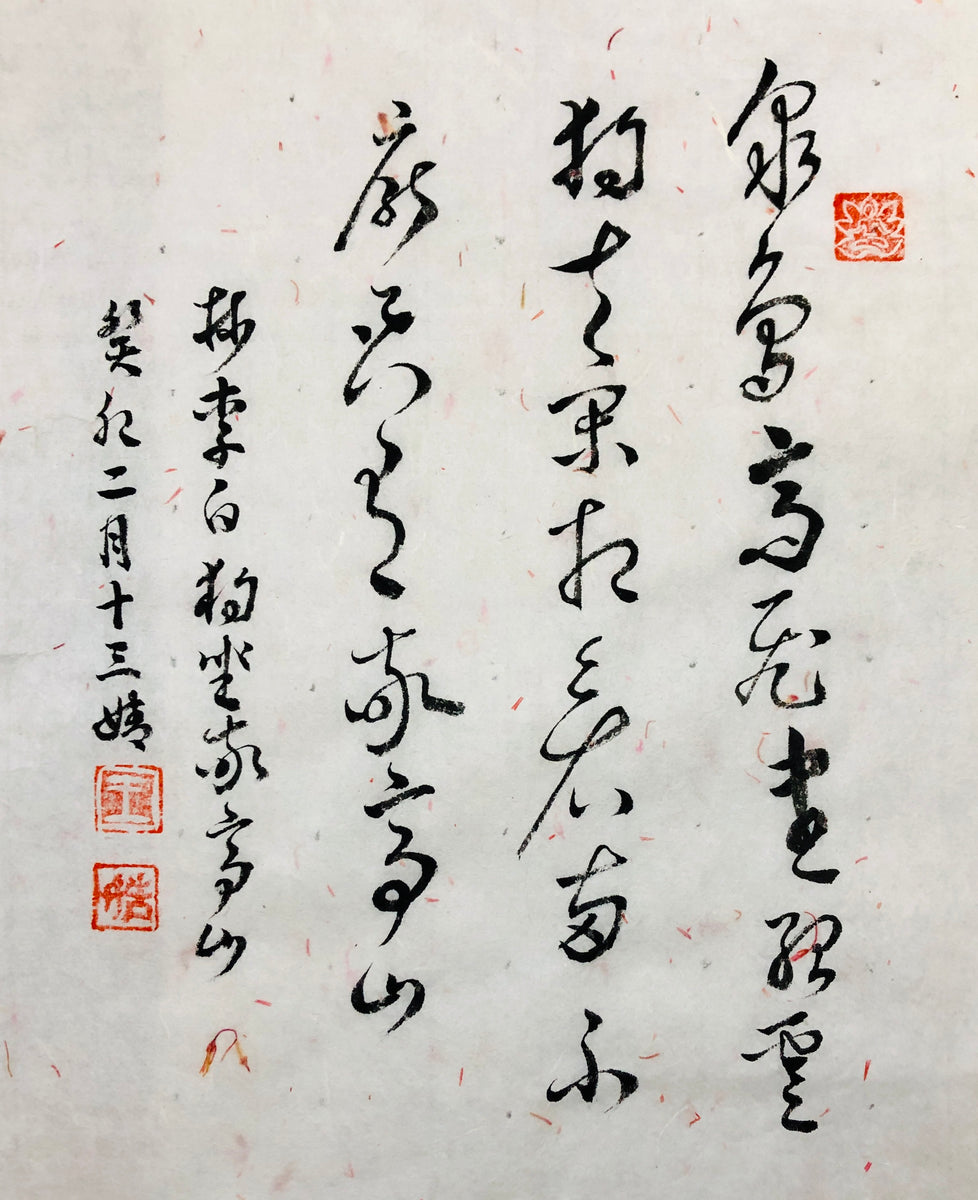 眾鳥高飛盡孤雲
獨去閑相看兩不
厭只有敬亭山
抄李白獨坐敬亭山
癸卯二月十三婧
王